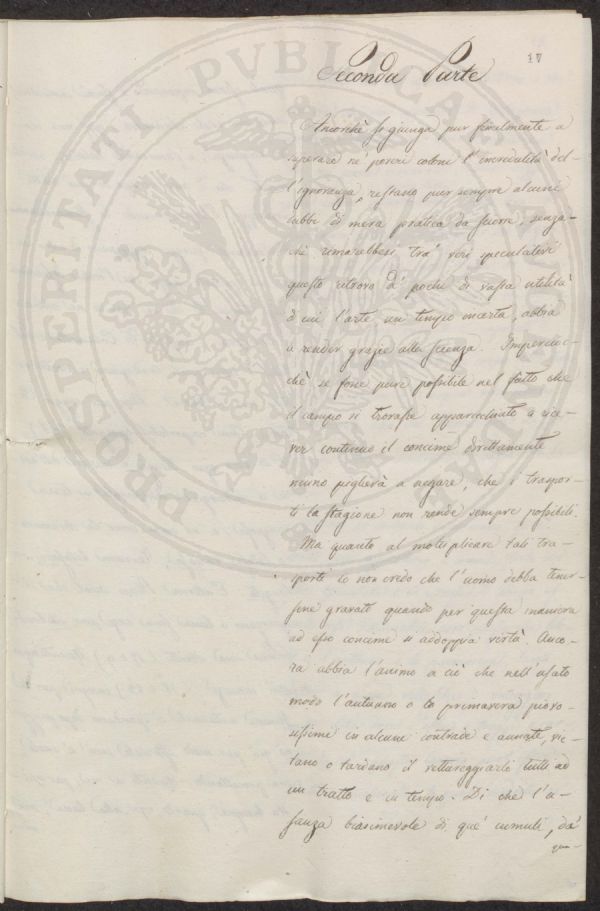 17
Seconda Parte
Ancorchè si giunga pur finalmente a
superare ne' poveri coloni l'incredulità del-
l'ignoranza, restano pur sempre alcuni
dubbi di mera pratica da sciorre, senza-
chè rimarebbesi tra' veri speculativi
questo ritrovo da' pochi di vasta utilità
di cui l'arte un tempo incerta, abbia
a render grazie alla scienza. Impercioc-
chè se fosse pure possibile nel fatto che
il campo si trovasse apparecchiato a rice-
ver continuo il concime direttamente
niuno piglierà a negare, che i traspor-
ti la stagione non rende sempre possibili.
Ma quanto al moltiplicare tali tra-
sporti io non credo che l'uomo debba tener-
sene gravato quando per questa maniera
ad esso concime si addoppia virtù. Anco-
ra abbia l'animo a ciò che nell'usato
modo l'autunno o la primavera piovo-
sissime in alcune contrade e annate, vie-
tano o tardano il vettureggiarli tutti ad
un tratto e in tempo. Di che l'u-
sanza biasimevole di que' cumuli, da'
qua-
PROSPERITATI PVBLICAE AVGENDAE